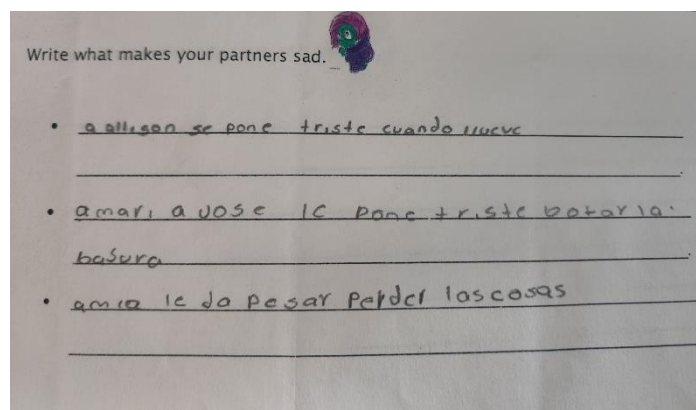 Write what makes your partners sad.
a allison se pone triste cuando llueve
a mari a jose le pone triste botar la
basura
a mia le da pesar perder las cosas